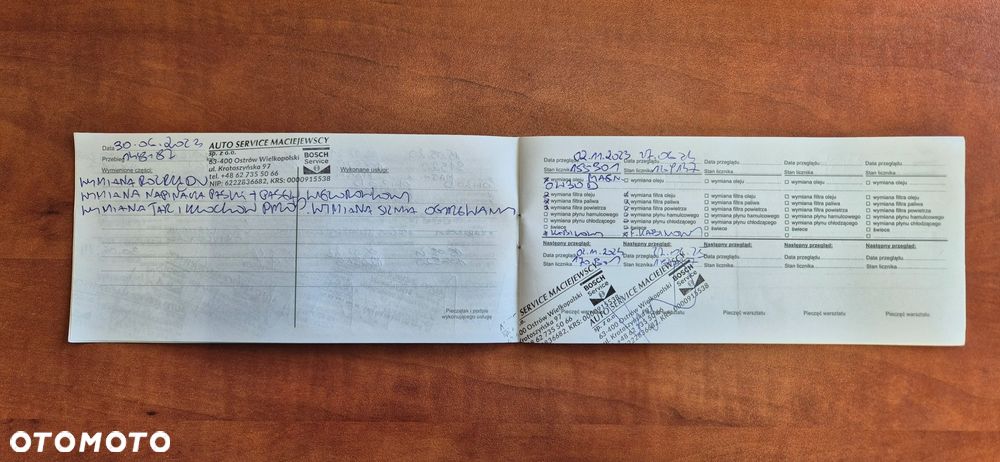 Data 30.06.2023
Przebieg 148187
AUTO SERVICE MACIEJEWSCY
sp. z o.o.
63-400 Ostrów Wielkopolski
ul. Krotoszyńska 97
tel. +48 62 735 50 66
NIP: 6222836682, KRS: 0000915538
BOSCH
Service
Wymienione części:
Wykonane usługi:
WYMIANA ROZRZĄDU
WYMIANA NAPINACZA PASKA + PASEK WIELOROWKOWY
WYMIANA TARCZ I KLOCKÓW PRZÓD WYMIANA SILNIKA OGRZEWANIA
Pieczątka i podpis
wykonującego usługę
Data przeglądu 02.11.2023
Stan licznika 155301
wymiana oleju
0W30 D
wymiana filtra oleju
wymiana filtra paliwa
wymiana filtra powietrza
wymiana płynu hamulcowego
wymiana płynu chłodzącego
świece
Następny przegląd:
Data przeglądu 02.11.2024
Stan licznika
Data przeglądu 17.06.24
Stan licznika
wymiana oleju
wymiana filtra oleju
wymiana filtra paliwa
wymiana filtra powietrza
wymiana płynu hamulcowego
wymiana płynu chłodzącego
świece
F. KABINOWY
Następny przegląd:
Data przeglądu
Stan licznika
Data przeglądu
Stan licznika
wymiana oleju
wymiana filtra oleju
wymiana filtra paliwa
wymiana filtra powietrza
wymiana płynu hamulcowego
wymiana płynu chłodzącego
świece
Następny przegląd:
Data przeglądu
Stan licznika
Pieczęć warsztatu
Data przeglądu
Stan licznika
wymiana oleju
wymiana filtra oleju
wymiana filtra paliwa
wymiana filtra powietrza
wymiana płynu hamulcowego
wymiana płynu chłodzącego
świece
Następny przegląd:
Data przeglądu
Stan licznika
Pieczęć warsztatu
Data przeglądu
Stan licznika
wymiana oleju
wymiana filtra oleju
wymiana filtra paliwa
wymiana filtra powietrza
wymiana płynu hamulcowego
wymiana płynu chłodzącego
świece
Następny przegląd:
Data przeglądu
Stan licznika
Pieczęć warsztatu
SERVICE MACIEJEWSCY
400 Ostrów Wielkopolski
Krotoszyńska 97
62 735 50 66
KRS: 0000915538
BOSCH
Service
AUTO SERVICE MACIEJEWSCY
sp. z o.o.
63-400 Ostrów Wielkopolski
ul. Krotoszyńska 97
KRS: 0000915538
BOSCH
Service
OTOMOTO